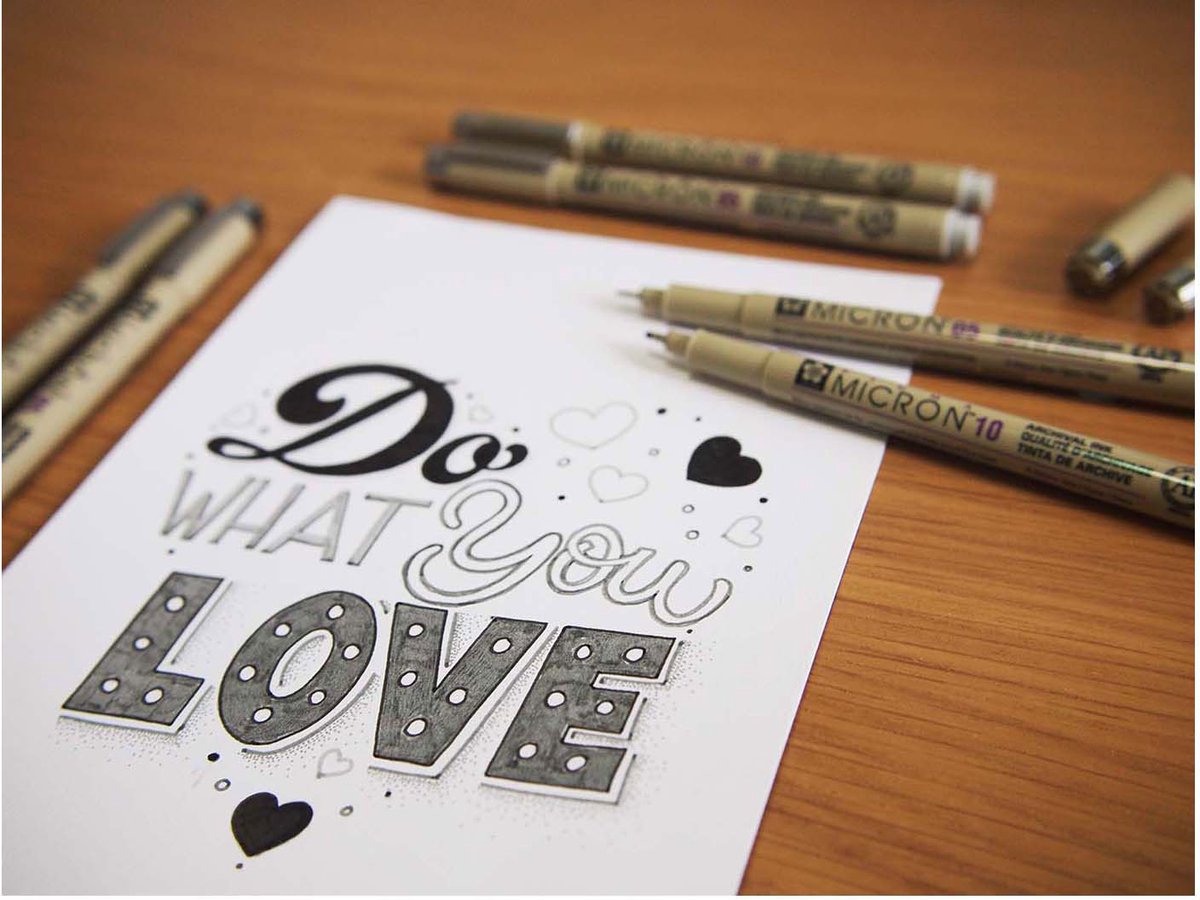 Do
WHAT You
LOVE
MICRON
MICRON
MICRON
MICRON 10
ARCHIVAL INK
QUALITÉ D'ARCHIVE
TINTA DE ARCHIVE